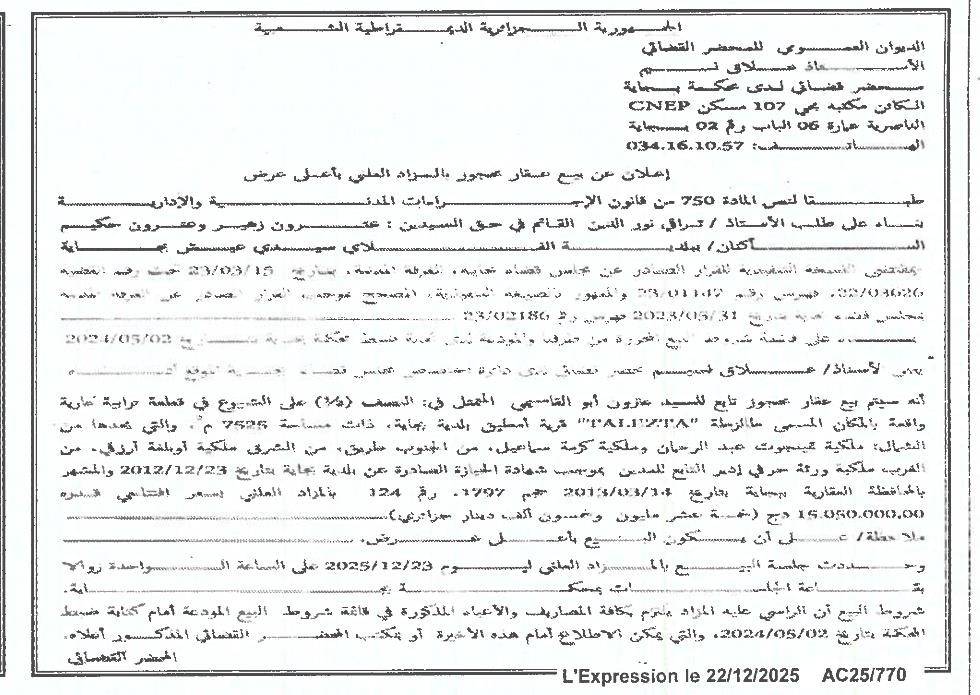 الجمهورية الجزائرية الديمقراطية الشعبية
الديوان العمومي للمحضر القضائي
الأستاذ علاق نسيم
محضر قضائي لدى محكمة بجاية
الكائن مكتبه بحي 107 مسكن CNEP
الناصرية عمارة 06 الباب رقم 02 بجاية
الهاتف: 034.16.10.57
إعلان عن بيع عقار محجوز بالمزاد العلني بأعلى عرض
طبقا لنص المادة 750 من قانون الإجراءات المدنية والإدارية
بناء على طلب الأستاذ / تراقي نور الدين القائم في حق السيدين : عزون زهير وعزون حكيم
الساكنان/ ببلدية الفلاي سيدي عيش بجاية
بمقتضى النسخة التنفيذية للقرار الصادر عن مجلس قضاء بجاية، الغرفة المدنية، بتاريخ 23/03/15 تحت رقم القضية
22/03626، فهرس رقم 23/01147 والممهور بالصيغة التنفيذية، المصحح بموجب القرار الصادر عن الغرفة المدنية
مجلس قضاء بجاية بتاريخ 2023/05/31 فهرس رقم 23/02186
بناء على قائمة شروط البيع المحررة من طرفنا والمودعة لدى أمانة ضبط محكمة بجاية بتاريخ 2024/05/02
نحن الأستاذ/ علاق نسيم محضر قضائي لدى دائرة اختصاص مجلس قضاء بجاية الموقع أدناه
أنه سيتم بيع عقار محجوز تابع للسيد عزون أبو القاسمي الممثل في: النصف (½) على الشيوع في قطعة ترابية عارية
واقعة بالمكان المسمى "TALEZTA" قرية بلدية بجاية، ذات مساحة 7525 م²، والتي يحدها من
الشمال: ملكية عبد الرحمان وملكية سماعيل، من الجنوب طريق، من الشرق ملكية أرزقي، من
الغرب ملكية ورثة التابع للمدين بموجب شهادة الحيازة الصادرة عن بلدية بجاية بتاريخ 2012/12/23 والمشهر
بالمحافظة العقارية ببجاية بتاريخ 2013/03/14 حجم 1797، رقم 124 بالمزاد العلني بسعر افتتاحي قدره
15.050.000,00 دج (خمسة عشر مليون وخمسون ألف دينار جزائري)
ملاحظة/ على أن يكون البيع بأعلى عرض.
وحددت جلسة البيع بالمزاد العلني ليوم 2025/12/23 على الساعة الواحدة زوالا
بقاعة الجلسات بمحكمة بجاية.
شروط البيع أن الراسي عليه المزاد يلتزم بكافة المصاريف والأعباء المذكورة في قائمة شروط البيع المودعة أمام كتابة ضبط
المحكمة بتاريخ 2024/05/02، والتي يمكن الاطلاع أمام هذه الأخيرة أو بمكتب المحضر القضائي المذكور أعلاه.
المحضر القضائي
L'Expression le 22/12/2025 AC25/770